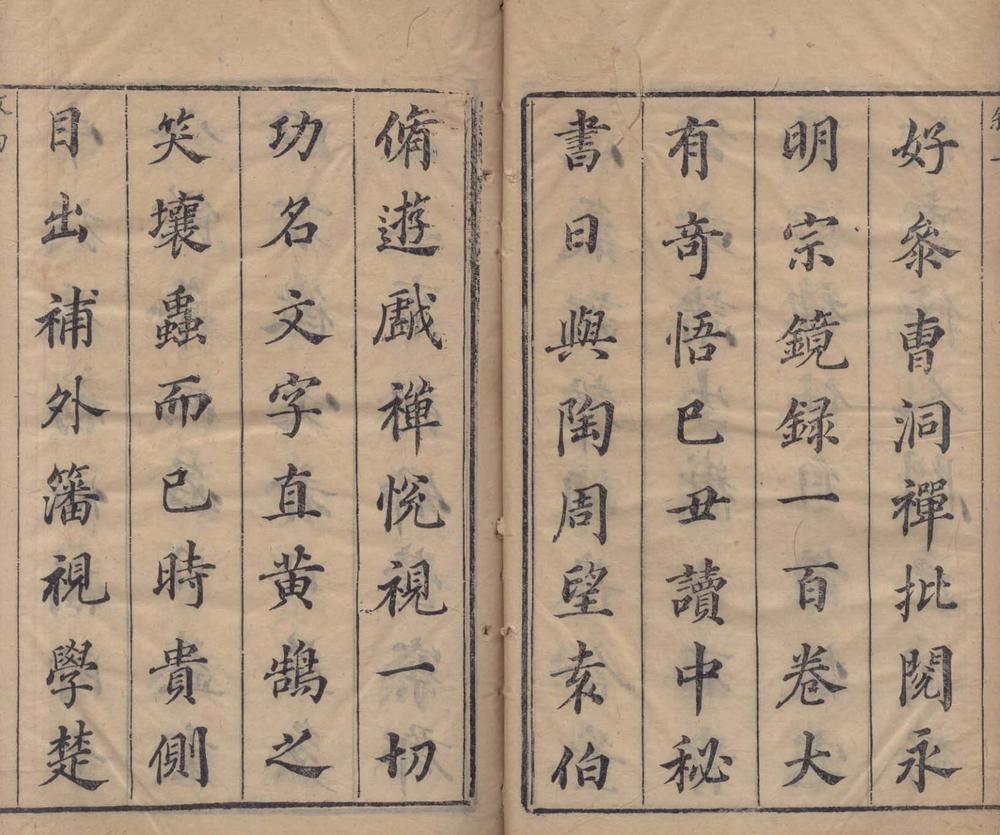 好參曹洞禪批閱永
明宗鏡録一百卷大
有竒悟已丑讀中秘
書日與陶周望袁伯
脩遊戲禪悅視一切
功名文字直黄鵠之
笑壤蟲而已時貴側
目出補外籓視學楚